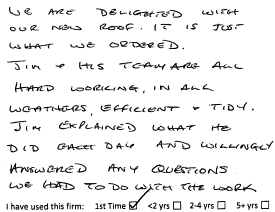 WE ARE DELIGHTED WITH
OUR NEW ROOF. IT IS JUST
WHAT WE ORDERED.
JIM & HIS TEAM ARE ALL
HARD WORKING, IN ALL
WEATHERS, EFFICIENT & TIDY.
JIM EXPLAINED WHAT HE
DID EACH DAY AND WILLINGLY
ANSWERED ANY QUESTIONS
WE HAD TO DO WITH THE WORK
I have used this firm: 1st Time ☑ <2 yrs ☐ 2-4 yrs ☐ 5+ yrs ☐